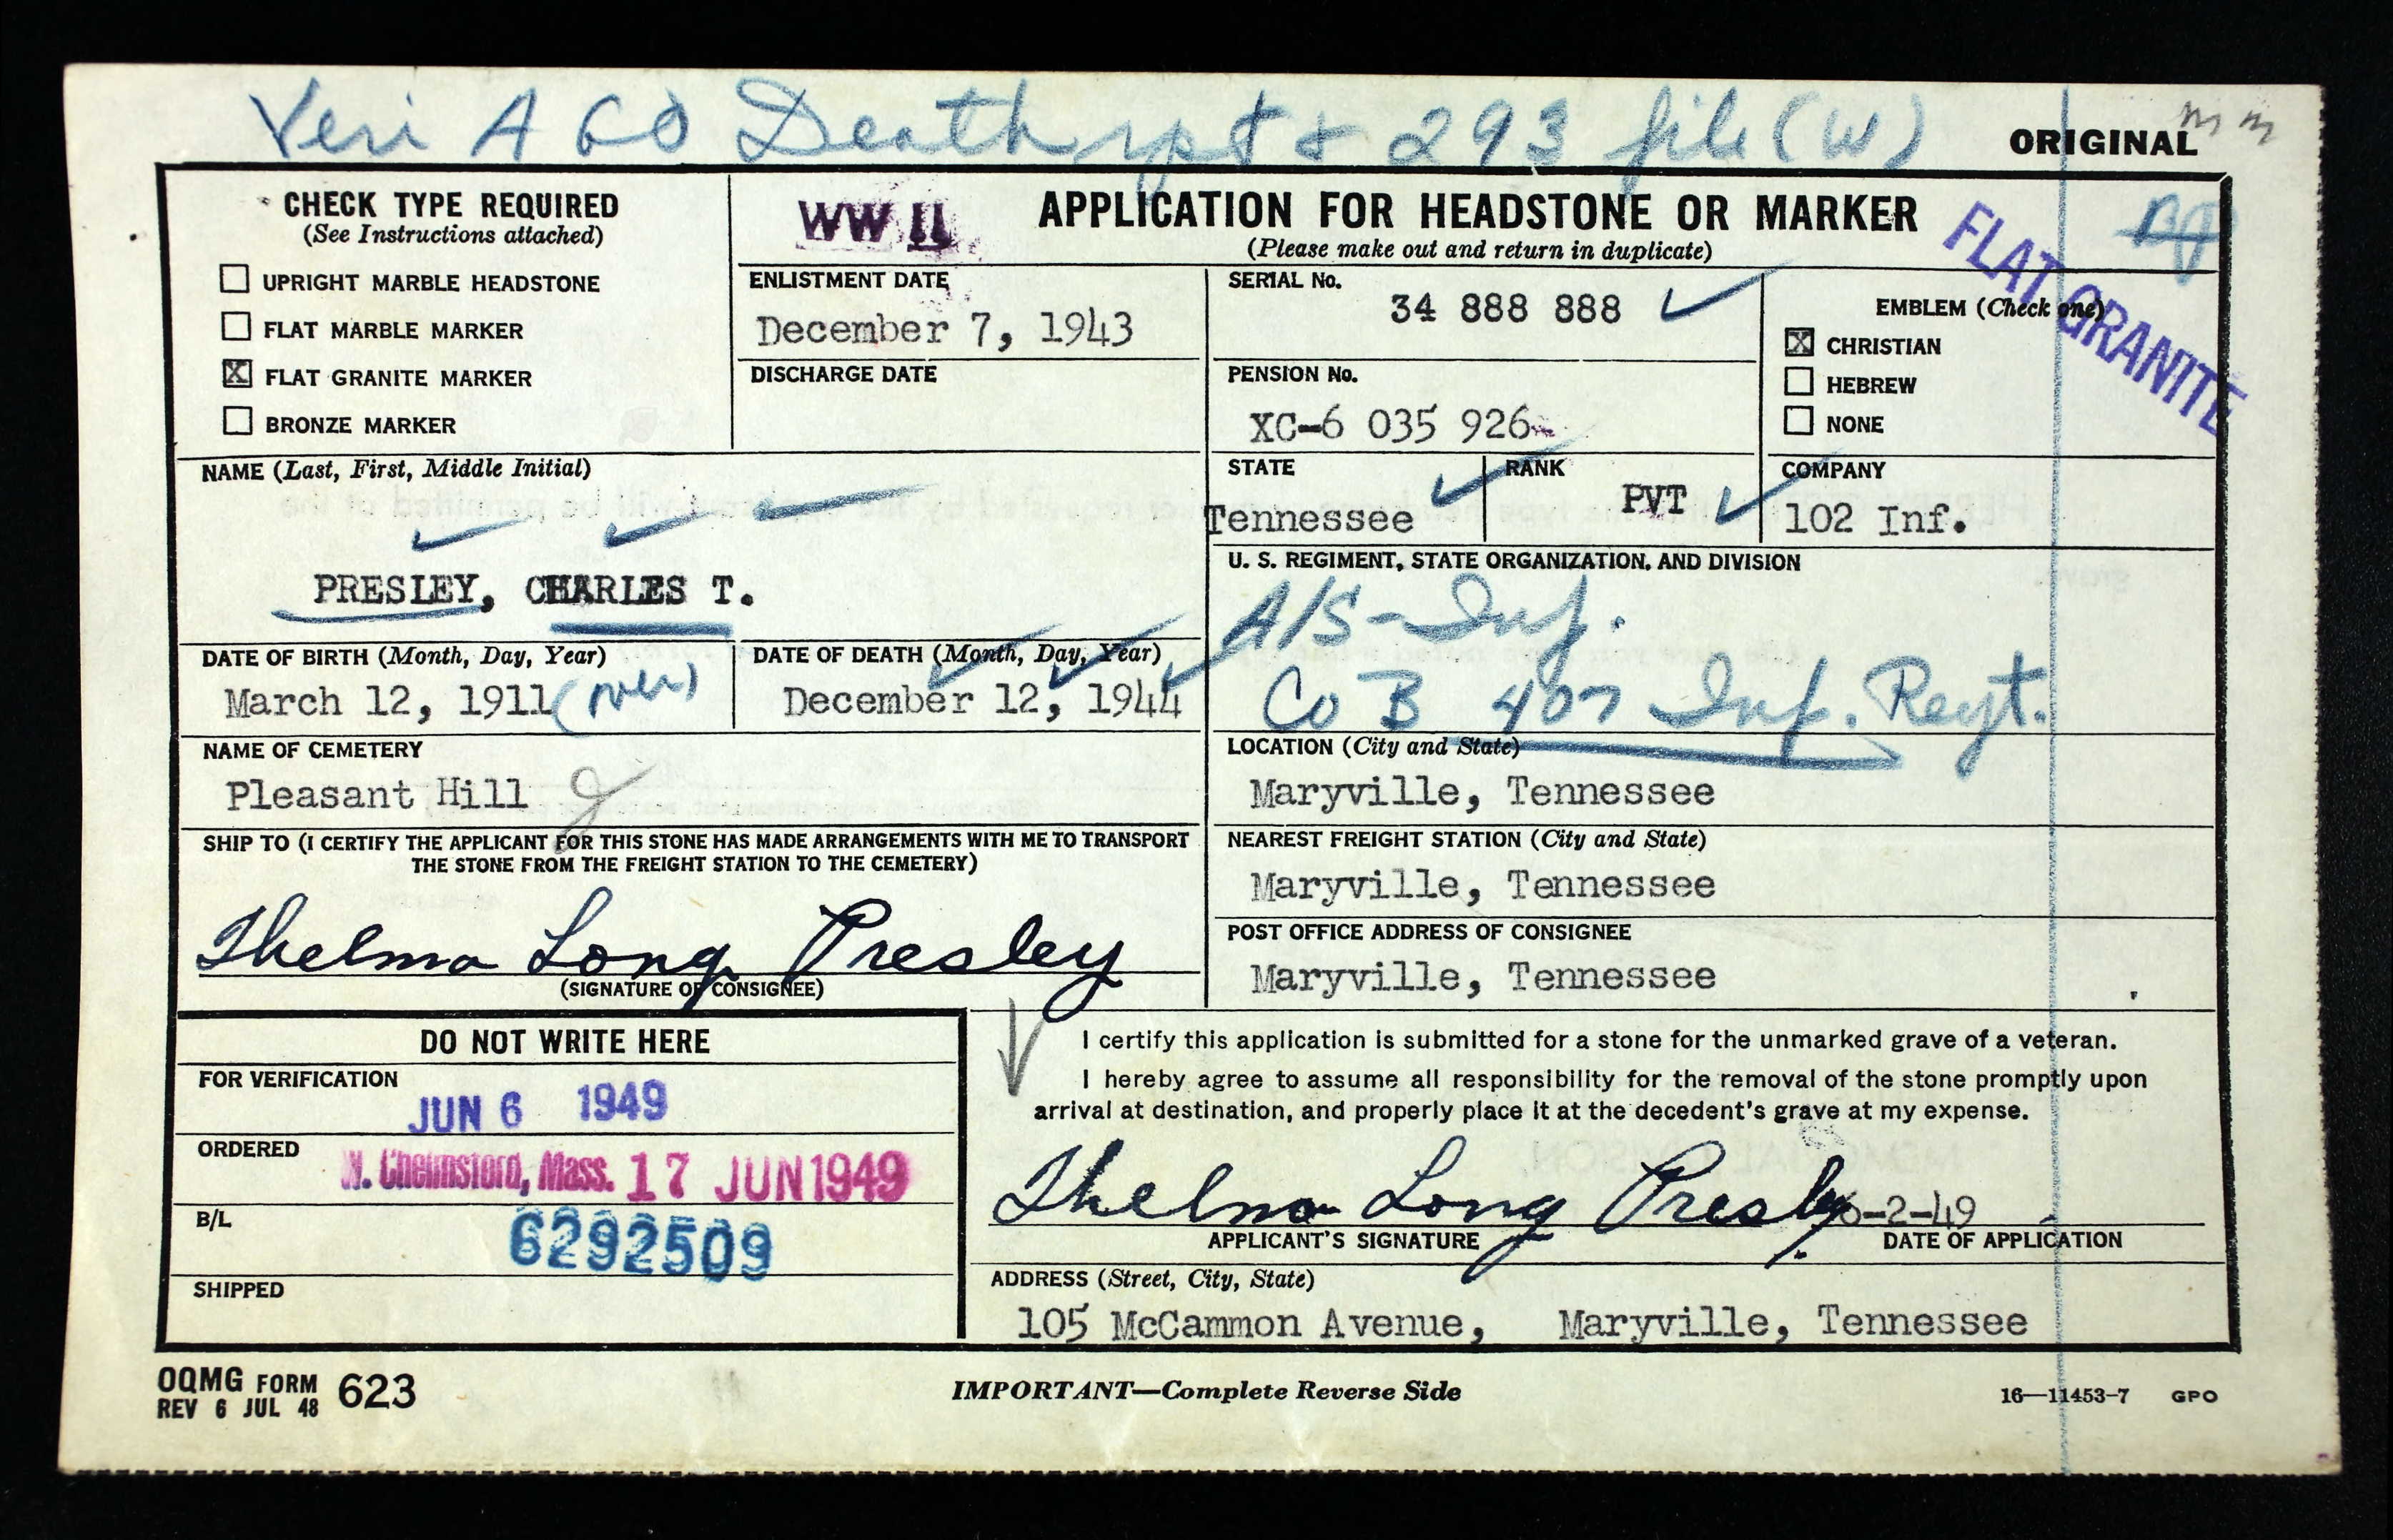 Veri A GO Death rpt & 293 file (W)
ORIGINAL
m m
CHECK TYPE REQUIRED
(See Instructions attached)
UPRIGHT MARBLE HEADSTONE
FLAT MARBLE MARKER
X FLAT GRANITE MARKER
BRONZE MARKER
WW II
APPLICATION FOR HEADSTONE OR MARKER
(Please make out and return in duplicate)
FLAT GRANITE
ENLISTMENT DATE
December 7, 1943
DISCHARGE DATE
SERIAL No.
34 888 888
PENSION No.
XC-6 035 926
EMBLEM (Check one)
X CHRISTIAN
HEBREW
NONE
NAME (Last, First, Middle Initial)
PRESLEY, CHARLES T.
STATE
Tennessee
RANK
PVT
COMPANY
102 Inf.
U. S. REGIMENT, STATE ORGANIZATION, AND DIVISION
A/S-Inf.
Co B 407 Inf. Regt.
DATE OF BIRTH (Month, Day, Year)
March 12, 1911 (over)
DATE OF DEATH (Month, Day, Year)
December 12, 1944
NAME OF CEMETERY
Pleasant Hill
LOCATION (City and State)
Maryville, Tennessee
SHIP TO (I CERTIFY THE APPLICANT FOR THIS STONE HAS MADE ARRANGEMENTS WITH ME TO TRANSPORT
THE STONE FROM THE FREIGHT STATION TO THE CEMETERY)
Thelma Long Presley
(SIGNATURE OF CONSIGNEE)
NEAREST FREIGHT STATION (City and State)
Maryville, Tennessee
POST OFFICE ADDRESS OF CONSIGNEE
Maryville, Tennessee
DO NOT WRITE HERE
FOR VERIFICATION
JUN 6 1949
ORDERED
N. Chelmsford, Mass. 17 JUN 1949
B/L
6292509
SHIPPED
I certify this application is submitted for a stone for the unmarked grave of a veteran.
I hereby agree to assume all responsibility for the removal of the stone promptly upon
arrival at destination, and properly place it at the decedent's grave at my expense.
Thelma Long Presley 6-2-49
APPLICANT'S SIGNATURE
DATE OF APPLICATION
ADDRESS (Street, City, State)
105 McCammon Avenue, Maryville, Tennessee
OQMG FORM 623
REV 6 JUL 48
IMPORTANT—Complete Reverse Side
16—11453-7 GPO